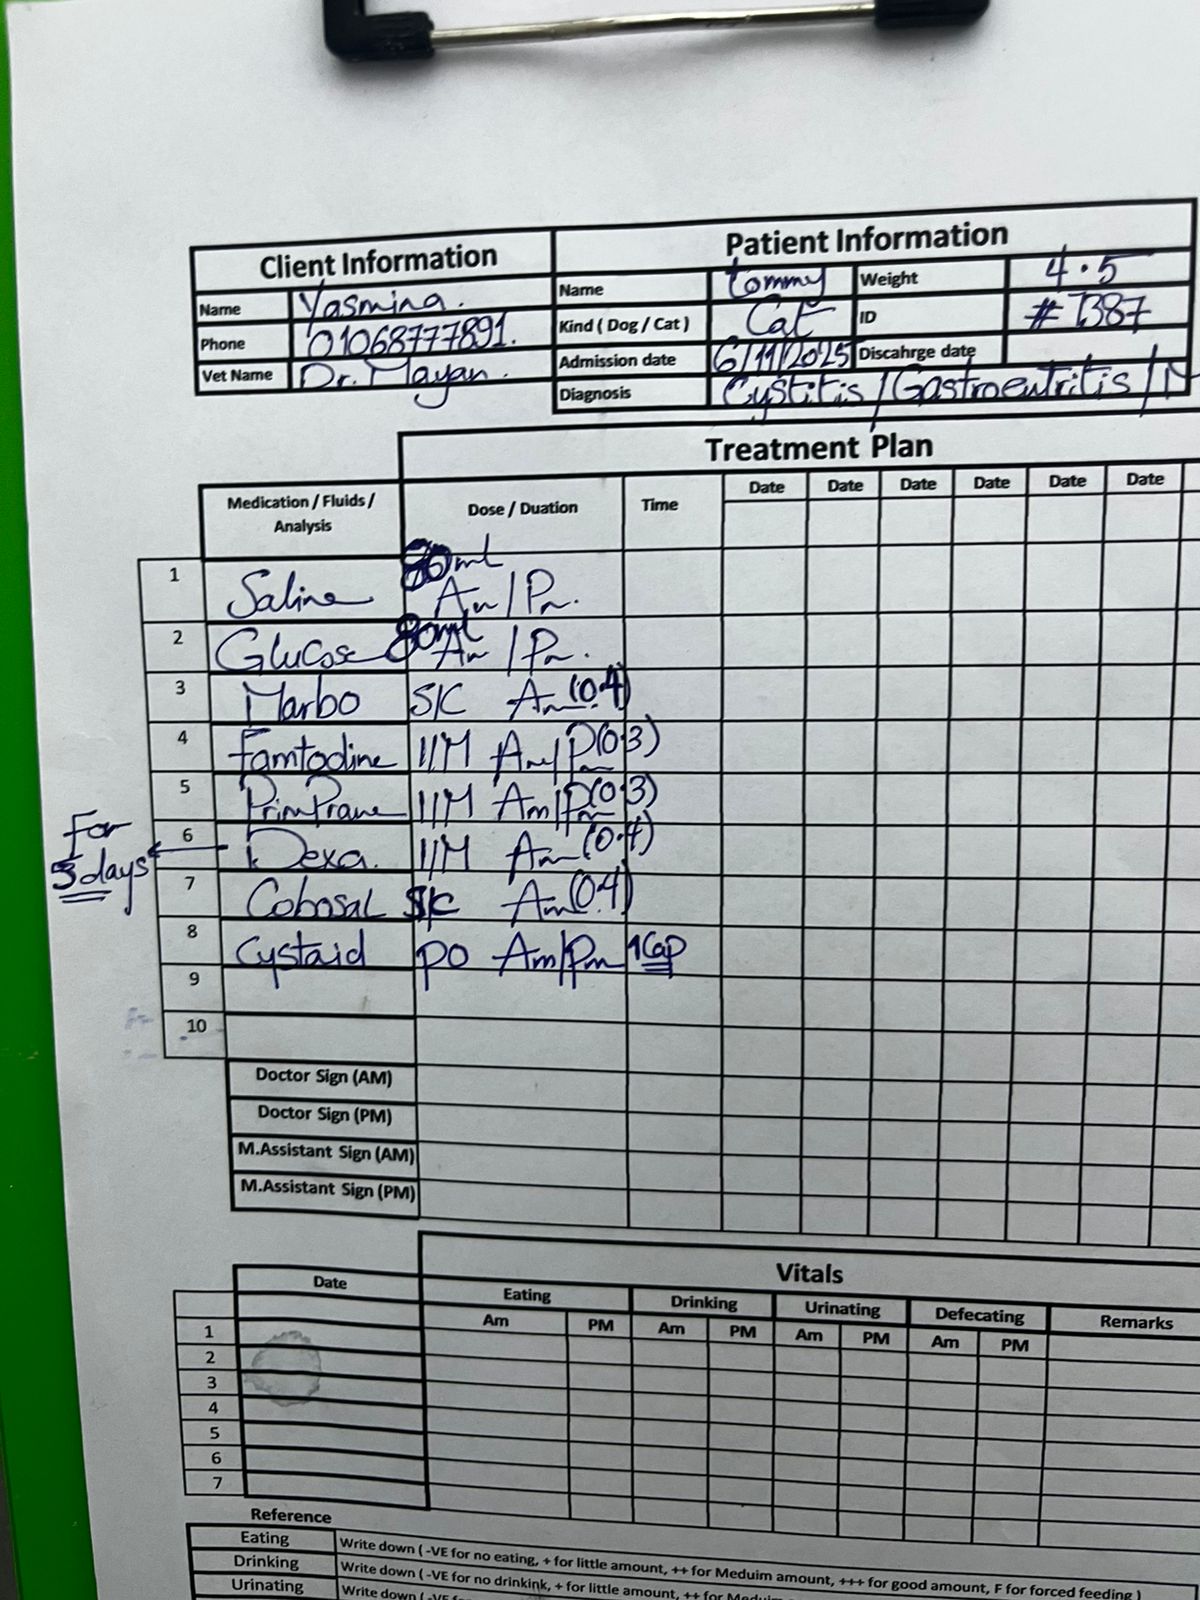 Client Information
Patient Information
Name Yasmina.
Name Tommy Weight 4.5
Phone 01068777891.
Kind ( Dog / Cat ) Cat ID # 7387
Vet Name Dr. Mayan.
Admission date 6/11/2025 Discahrge date
Diagnosis Cystitis / Gastroentritis /
Treatment Plan
Medication / Fluids / Analysis Dose / Duation Time Date Date Date Date Date Date
1 Saline 80ml Am / Pm.
2 Glucose 80ml Am / Pm.
3 Marbo S/C Am (0.4)
4 Famtodine I/M Am/Pm (0.3)
5 PrimPrane I/M Am/Pm (0.3)
For 3 days 6 Dexa. I/M Am (0.4)
7 Cobosal S/C Am (0.4)
8 Cystaid PO Am/Pm 1 Cap
9
10
Doctor Sign (AM)
Doctor Sign (PM)
M.Assistant Sign (AM)
M.Assistant Sign (PM)
Vitals
Date Eating Drinking Urinating Defecating Remarks
Am PM Am PM Am PM Am PM
1
2
3
4
5
6
7
Reference
Eating Write down ( -VE for no eating, + for little amount, ++ for Meduim amount, +++ for good amount, F for forced feeding )
Drinking Write down ( -VE for no drinkink, + for little amount, ++ for
Urinating Write down